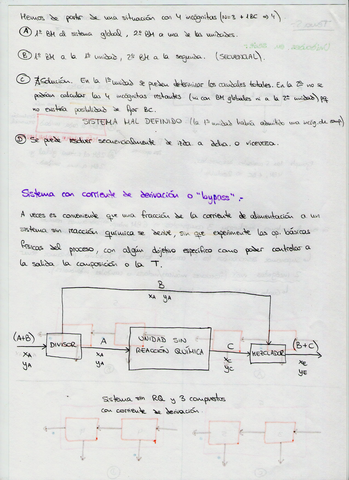 Hemos de partir de una situación con 4 incógnitas (N=3 + 1BC ⇒ 4)
Ⓐ 1º BM al sistema global, 2º BM a una de las unidades.
Ⓑ 1º BM a la 1ª unidad, 2º BM a la segunda. (SECUENCIAL).
Ⓒ En la 1ª unidad se pueden determinar los caudales totales. En la 2ª no se
podrían calcular las 4 incógnitas restantes (ni con BM globales ni a la 2ª unidad) pq
no existiría posibilidad de fijar BC.
SISTEMA MAL DEFINIDO (la 1ª unidad habría admitido una incóg. de comp)
Ⓓ Se puede resolver secuencialmente de izda a dcha. o viceversa.
Sistema con corriente de derivación o "bypass".-
A veces es conveniente que una fracción de la corriente de alimentación a un
sistema sin reacción química se derive, sin que experimente las op. básicas
físicas del proceso, con algún objetivo específico como poder controlar a
la salida la composición o la T.
B
xA yA
(A+B)
xA
yA
DIVISOR
A
xA
yA
UNIDAD SIN
REACCIÓN QUÍMICA
C
xC
yC
MEZCLADOR
(B+C)
xE
yE
Sistema sin RQ y 3 compuestos
con corriente de derivación